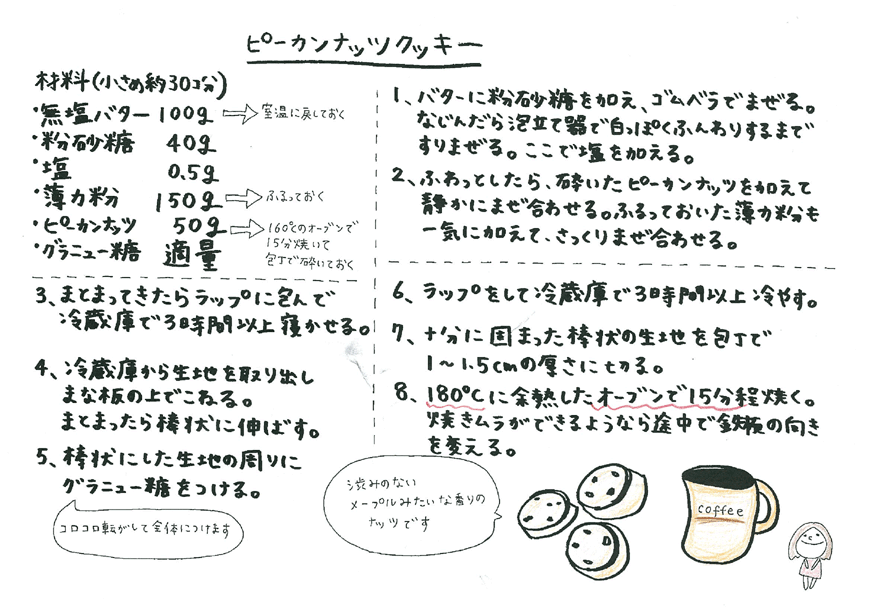 ピーカンナッツクッキー
材料(小さめ約30コ分)
・無塩バター 100g ⇨ 室温に戻しておく
・粉砂糖 40g
・塩 0.5g
・薄力粉 150g ⇨ ふるっておく
・ピーカンナッツ 50g ⇨ 160℃のオーブンで
15分焼いて
包丁で砕いておく
・グラニュー糖 適量
1、バターに粉砂糖を加え、ゴムベラでまぜる。
なじんだら泡立て器で白っぽくふんわりするまで
すりまぜる。ここで塩を加える。
2、ふわっとしたら、砕いたピーカンナッツを加えて
静かにまぜ合わせる。ふるっておいた薄力粉も
一気に加えて、さっくりまぜ合わせる。
3、まとまってきたらラップに包んで
冷蔵庫で3時間以上寝かせる。
4、冷蔵庫から生地を取り出し
まな板の上でこねる。
まとまったら棒状に伸ばす。
5、棒状にした生地の周りに
グラニュー糖をつける。
コロコロ転がして全体につけます
6、ラップをして冷蔵庫で3時間以上冷やす。
7、十分に固まった棒状の生地を包丁で
1〜1.5cmの厚さに切る。
8、180℃に余熱したオーブンで15分程焼く。
焼きムラができるようなら途中で鉄板の向き
を変える。
渋みのない
メープルみたいな香りの
ナッツです
coffee